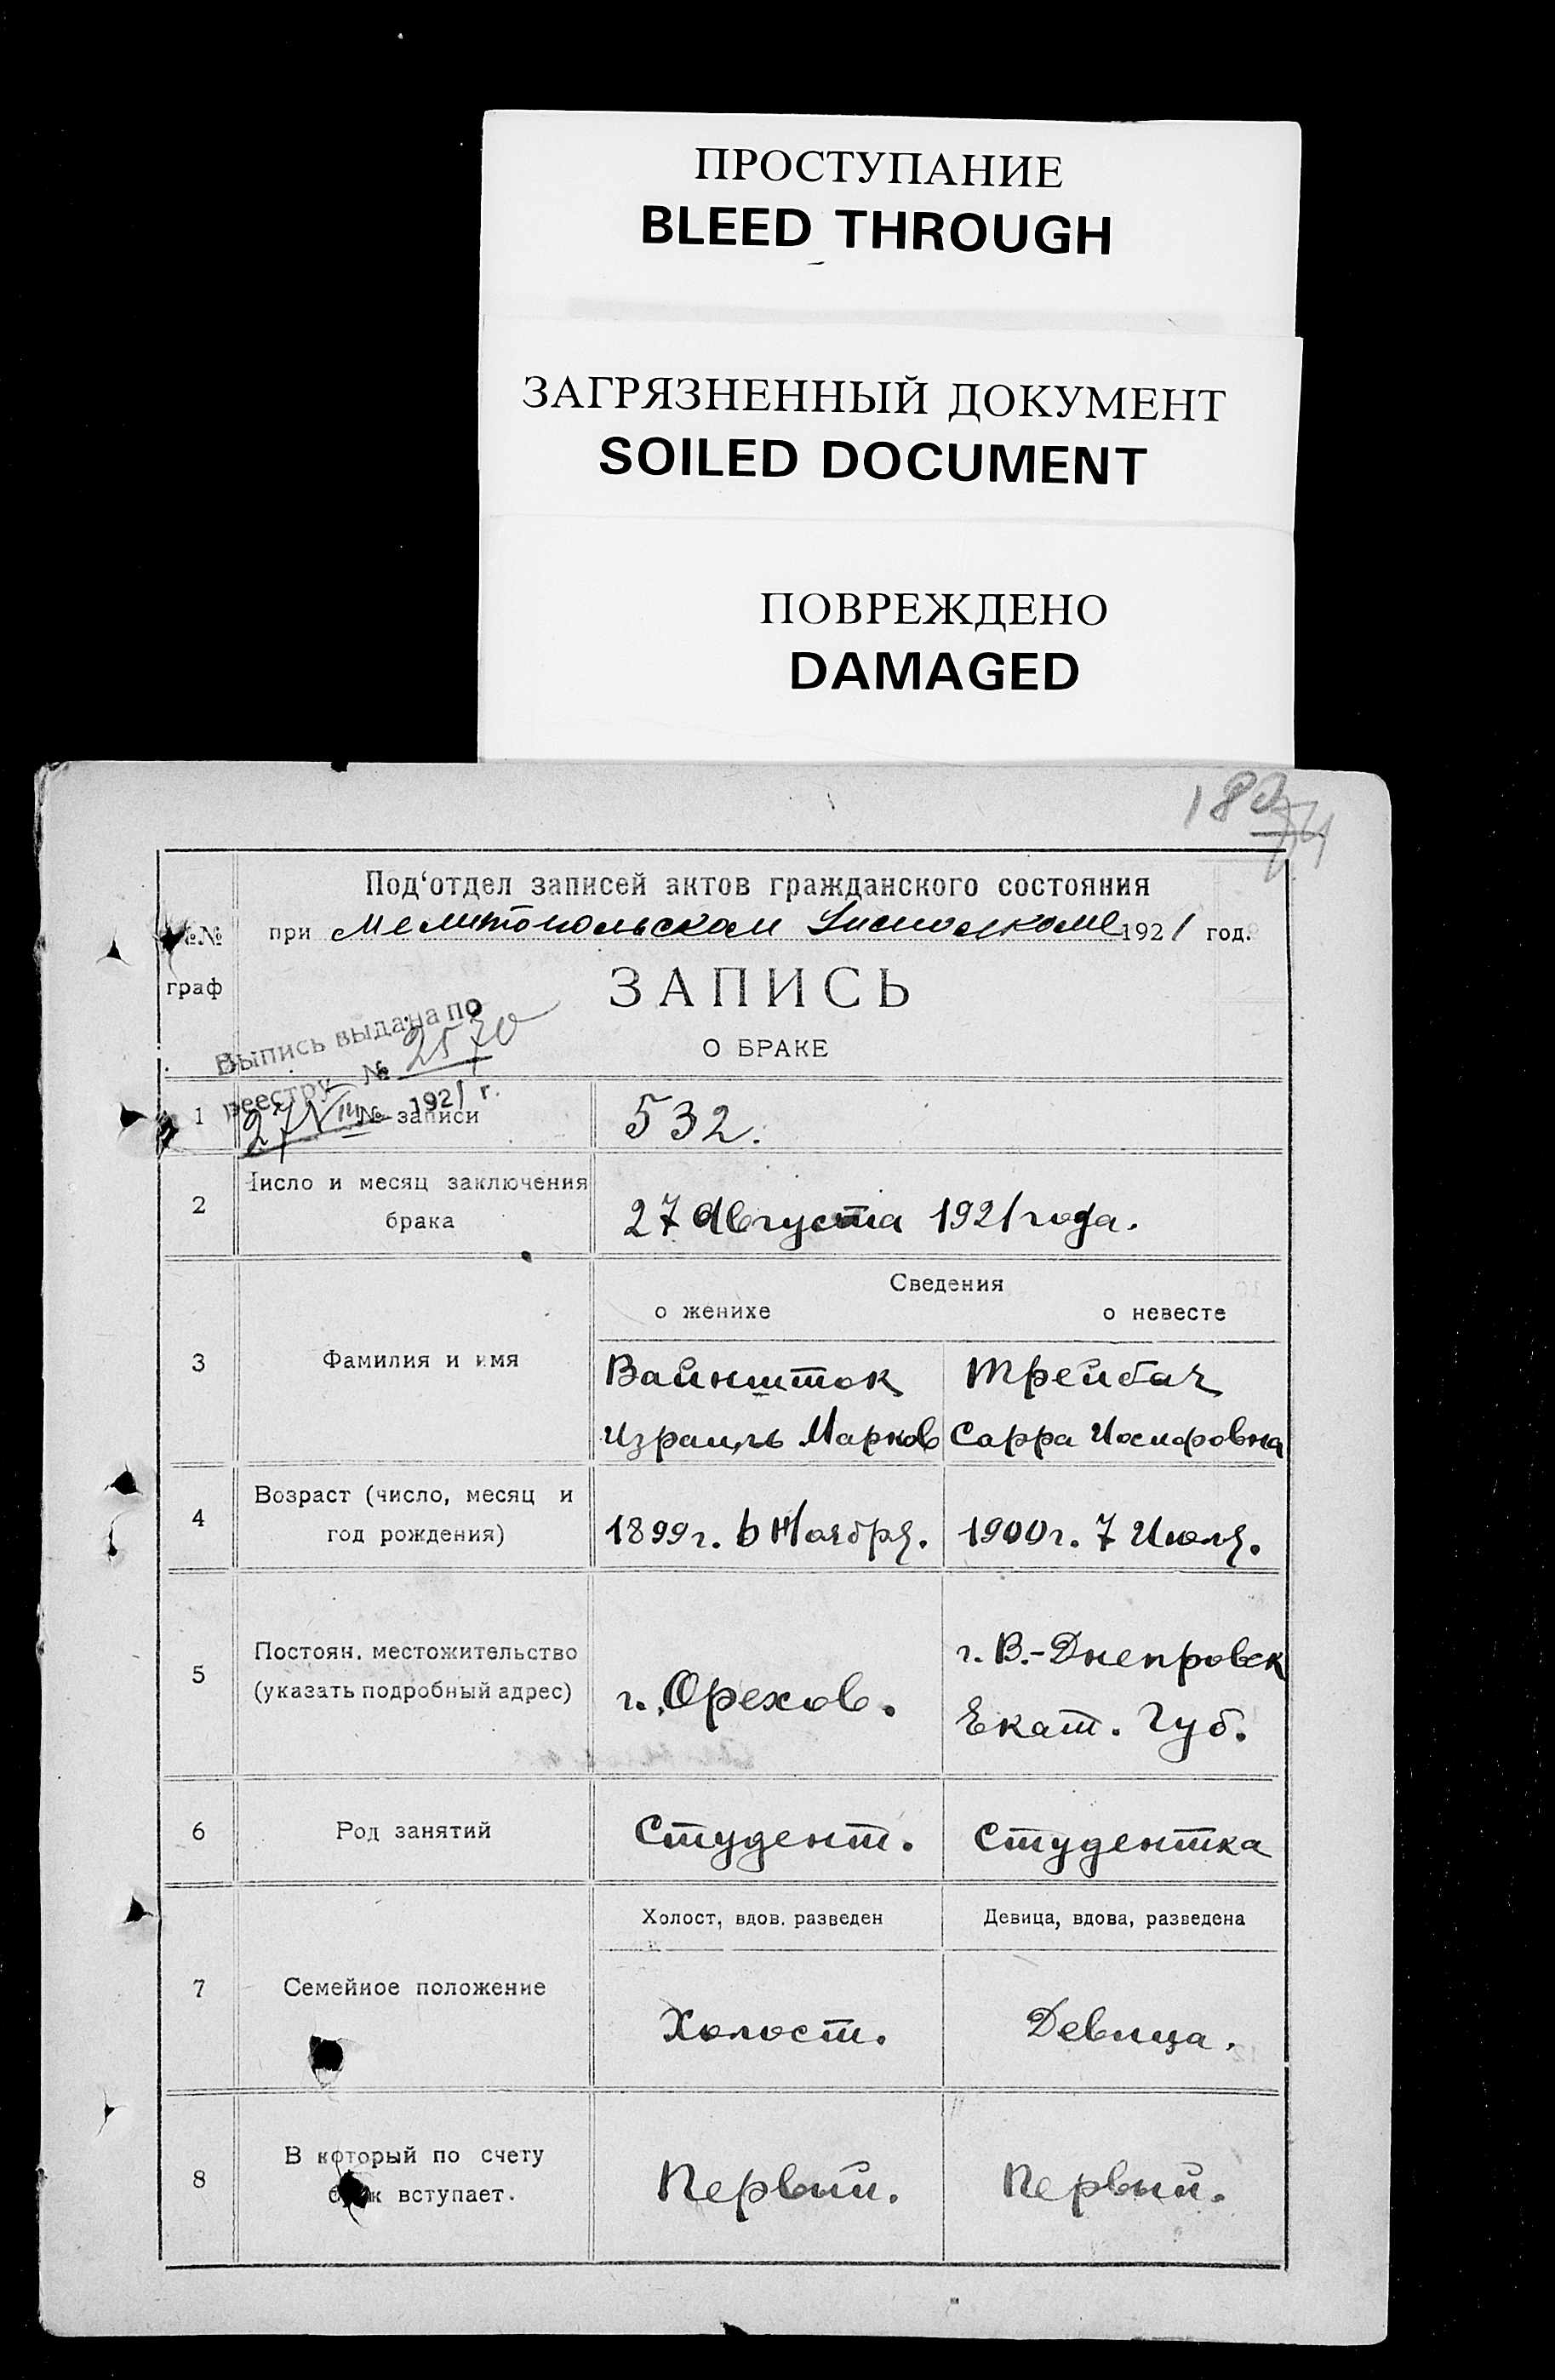 ПРОСТУПАНИЕ
BLEED THROUGH
ЗАГРЯЗНЕННЫЙ ДОКУМЕНТ
SOILED DOCUMENT
ПОВРЕЖДЕНО
DAMAGED
Под‘отдел записей актов гражданского состояния
при Мелитопольском Исполкоме 1921 год.
№№
граф
ЗАПИСЬ
О БРАКЕ
Выпись выдана по
реестру № 2570
27 VIII 1921 г.
1 № записи 532.
2 Число и месяц заключения
брака
27 Августа 1921 года.
Сведения
о женихе о невесте
3 Фамилия и имя
Вайншток Трейбач
Израиль Марков Сарра Иосифовна
4 Возраст (число, месяц и
год рождения)
1899 г. 6 Ноября. 1900 г. 7 Июля.
5 Постоян. местожительство
(указать подробный адрес)
г. Орехов. г. В.-Днепровск
Екат. Губ.
6 Род занятий Студент. Студентка
Холост, вдов. разведен Девица, вдова, разведена
7 Семейное положение
Холост. Девица.
8 В который по счету
брак вступает.
Первый. Первый.